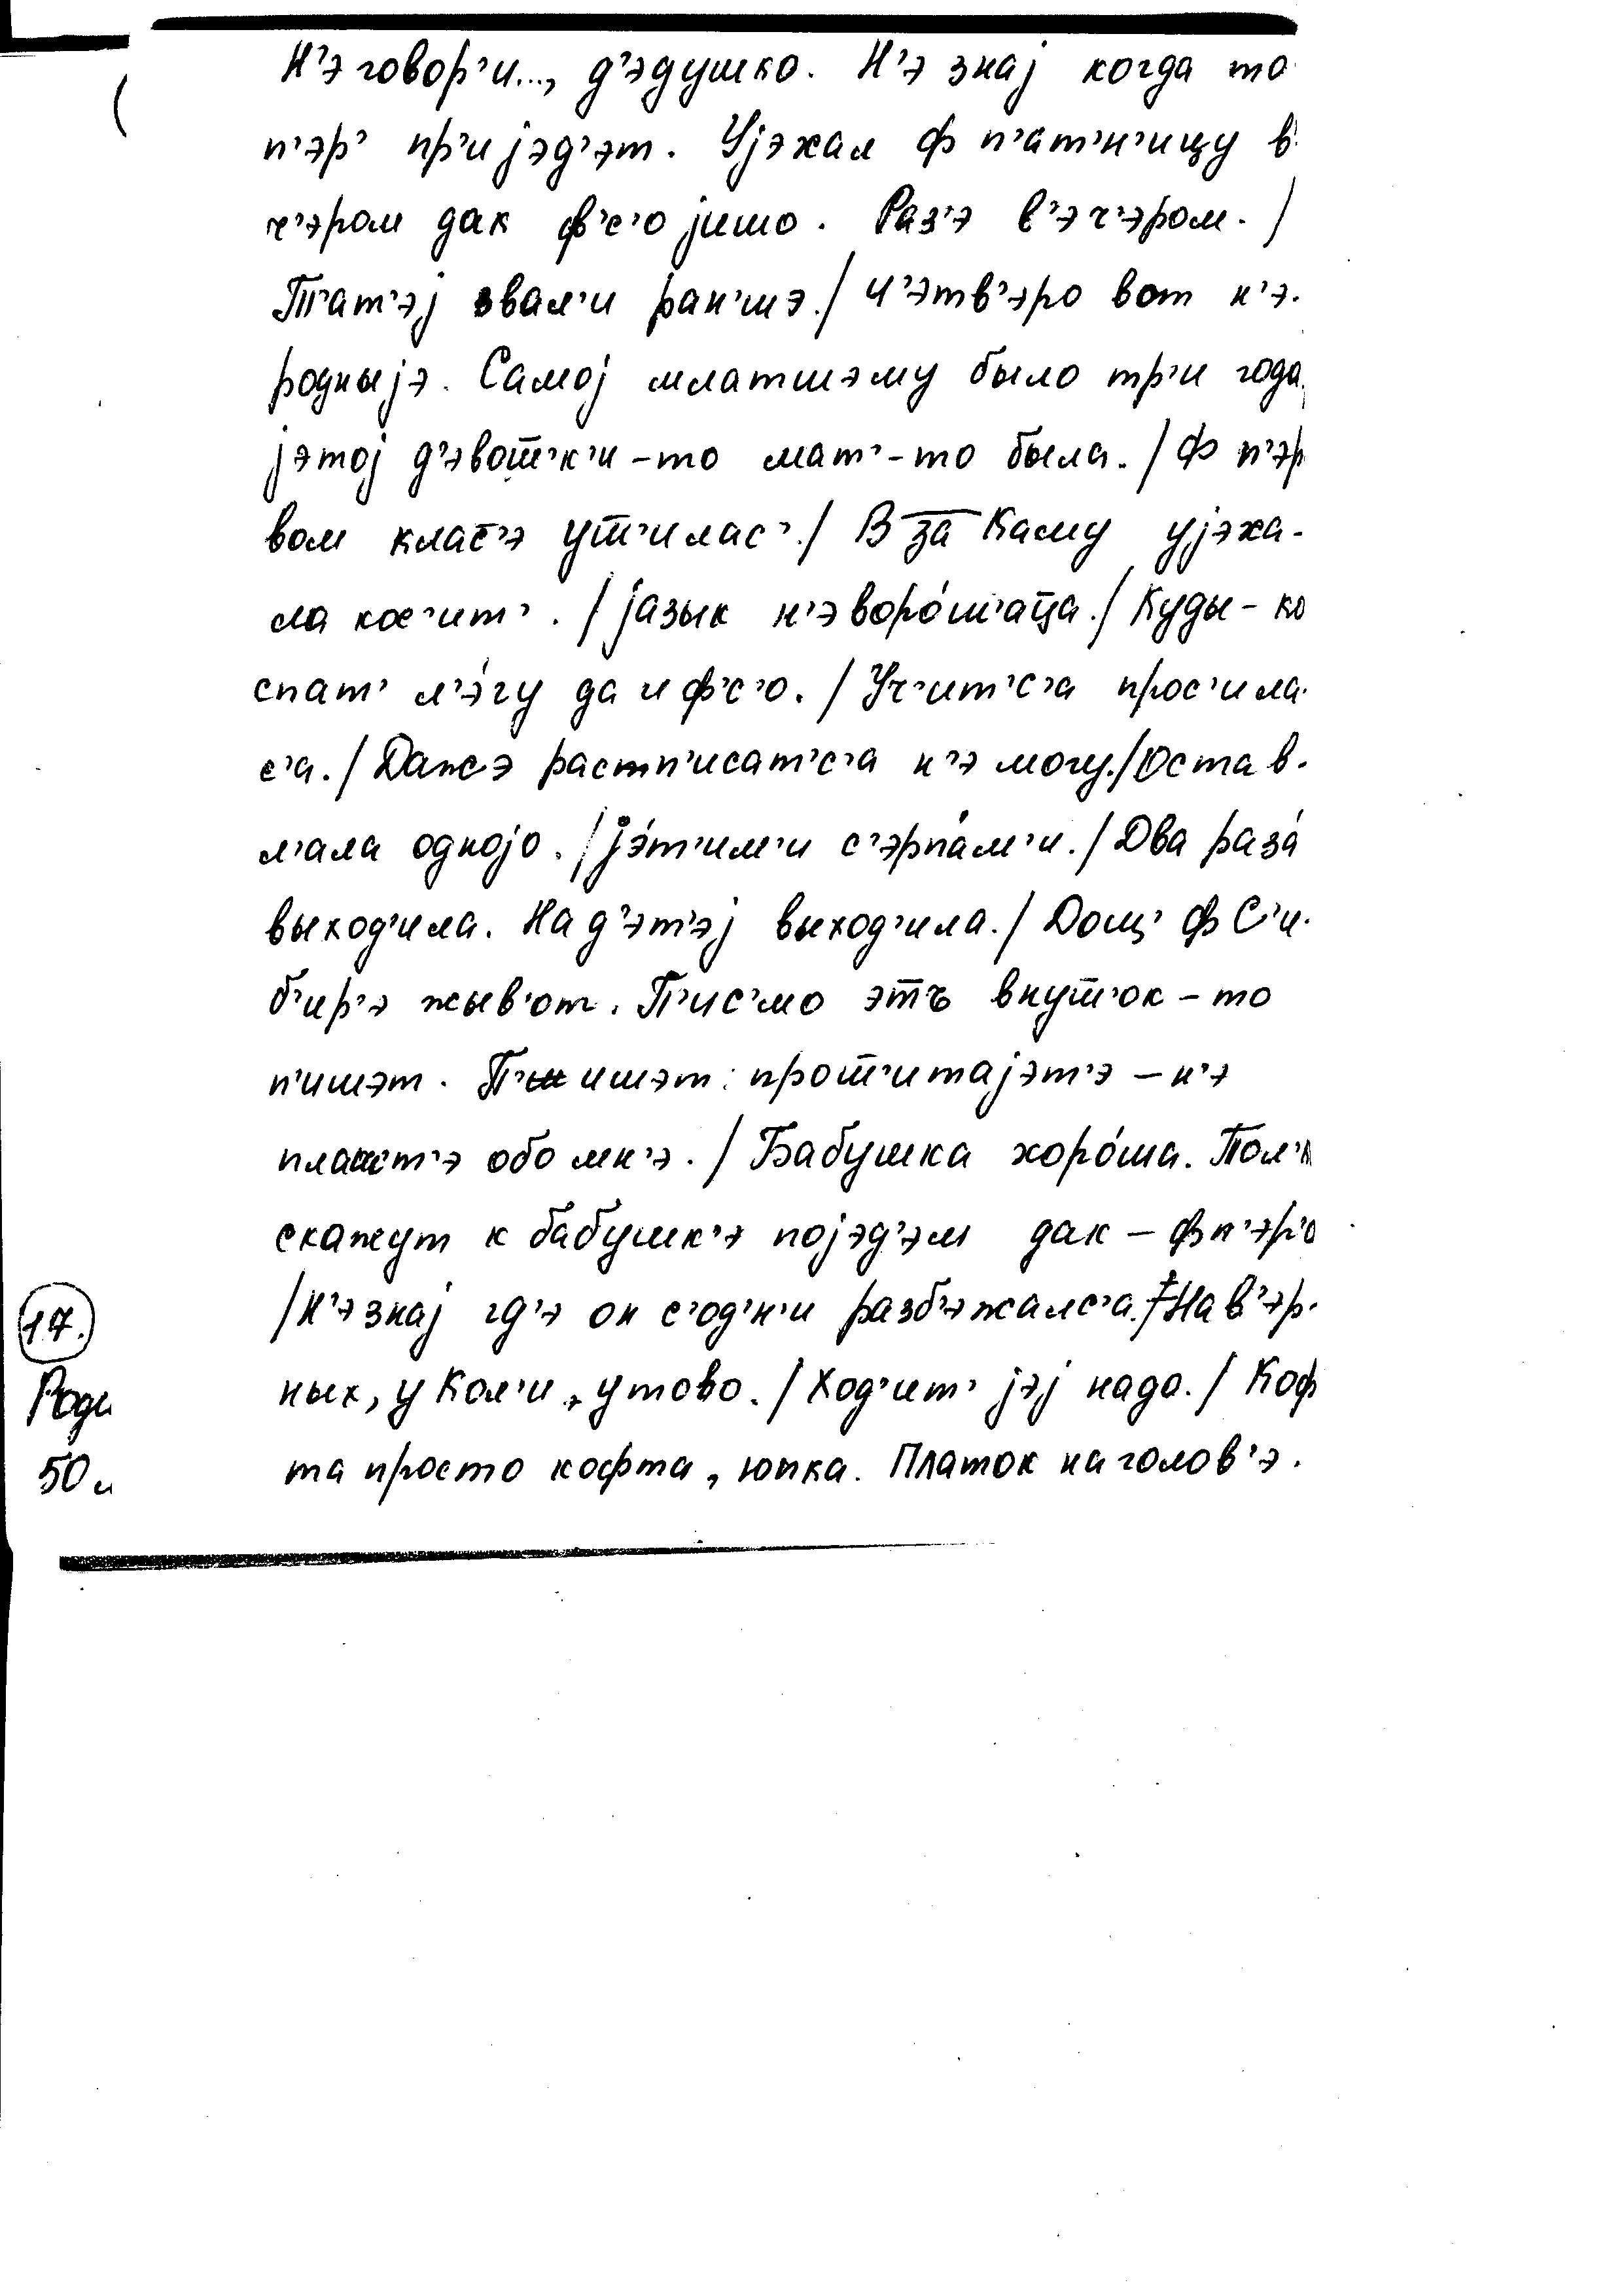 Н'э говор'и..., д'эдушко. Н'э знај когда то
п'эр' пр'ијэд'эт. Ујэхал ф п'ат'н'ицу в'
ч'эром дак ф'с'о јишо. Раз'э в'эч'эром. /
Т'ат'эј звал'и ран'шэ. / Ч'этв'эро вот н'э.
родныјэ. Самој млатшэму было тр'и года,
јэтој д'эвот̅'к'и-то мат'-то была. / Ф п'эр
вом клас̅'э ут̅'илас'. / В за Каму ујэха-
ла кос'ит'. / Јазык н'э воро́ш'ац̅а. / Куды-ко
спат' л'э́гу да и ф'с'о. / Уч'ит'с'а прос'ила-
с'а. / Дажэ растп'исат'с'а н'э могу. / Остав-
л'ала однојо. / Јэ́т'им'и с'эрпа́м'и. / Два раза́
выход'ила. На д'эт'эј выход'ила. / Дощ' ф С'и-
б'ир'э жыв'от. П'ис'мо эт̅ъ внут̅'ок-то
п'ишэт. П'ишэт: прот̅'итајэт'э – н'э
плач'т'э обо мн'э. / Бабушка хоро́ша. Пол'
скажут к бабушк'э појэд'эм дак – фп'эр'о
/ Н'э знај гд'э он с'од'н'и разб'эжалс'а. / На в'эр-
ных, у Кол'и, утово. / Ход'ит' јэј нада. / Коф
та просто кофта, юпка. Платок на голов'э.
17.
Роди
50 л